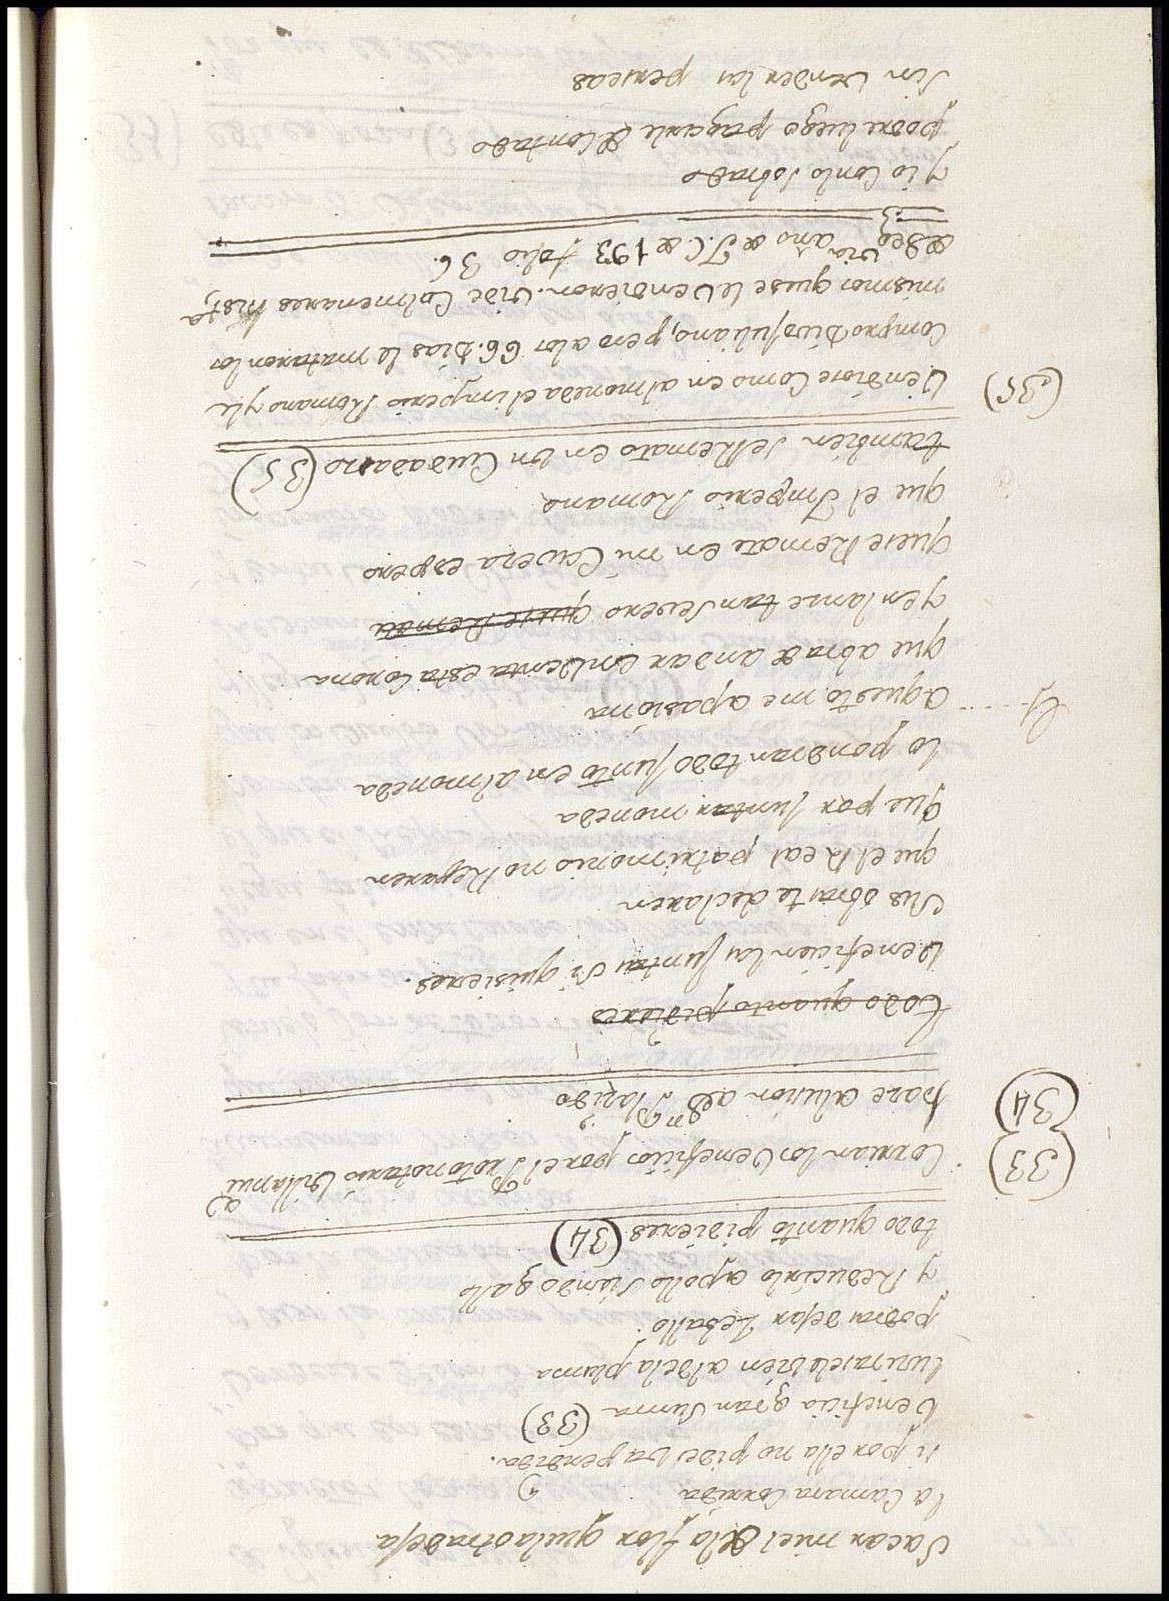 Sacar miel de la flor que la otra dexa
la Camara Corrida
si por ella no pides va perdida.
Veneficia gran Suma (33)
luciraseles bien al de la pluma
podras dexar Zeballo
y Reducirlo a pollo siendo gallo
todo quanto pidieres (34)
(33) Corrian los Veneficios por el Protonotario Villanua
(34) haze alusion a Dn Plazido
todo quanto pidieres
Veneficien las Juntas si quisieres.
Sus obras te declaren
que el Real patrimonio no Reparen
que por Juntar moneda
lo pondran todo Junto en almoneda
Aquesto me apasiona
que abra de andar en Venta esta Corona
y en lanze tan severo que se Remate
que se Remate en mi Cavera espero
que el Imperio Romano
tambien se Remato en un Ciudadano (35)
(35) Vendiose Como en almoneda el imperio Romano y le
Compro Divo Juliano, pero a los 66. Dias le mataron los
mismos que se le Vendieron. Vide Colmenares hista
de Segovia año de J. C. de 193 folio 36.
y io Con lo sobrado
podre luego pagarle de Contado
sin Vender las perseas